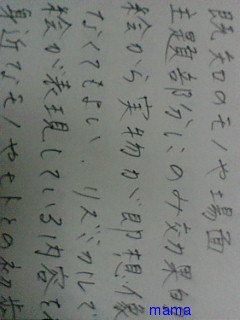 既知のモノや場面
主題部分にのみ効果白
絵から実物が即想像
なくてもよい。リズミカルで
絵が表現している内容を
身近なモノやヒトとの初歩
mama